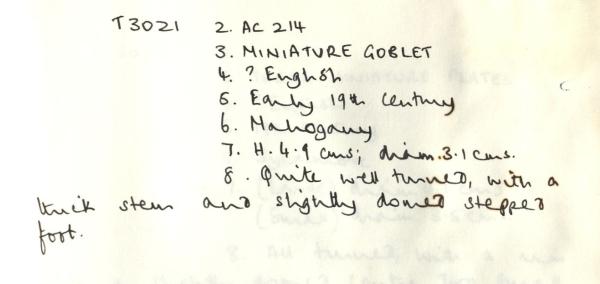 T3021 2. AC 214
3. MINIATURE GOBLET
4. ? English
5. Early 19th century
6. Mahogany
7. H. 4.9 cms; diam. 3.1 cms.
8. Quite well turned, with a
thick stem and slightly domed stepped
foot.